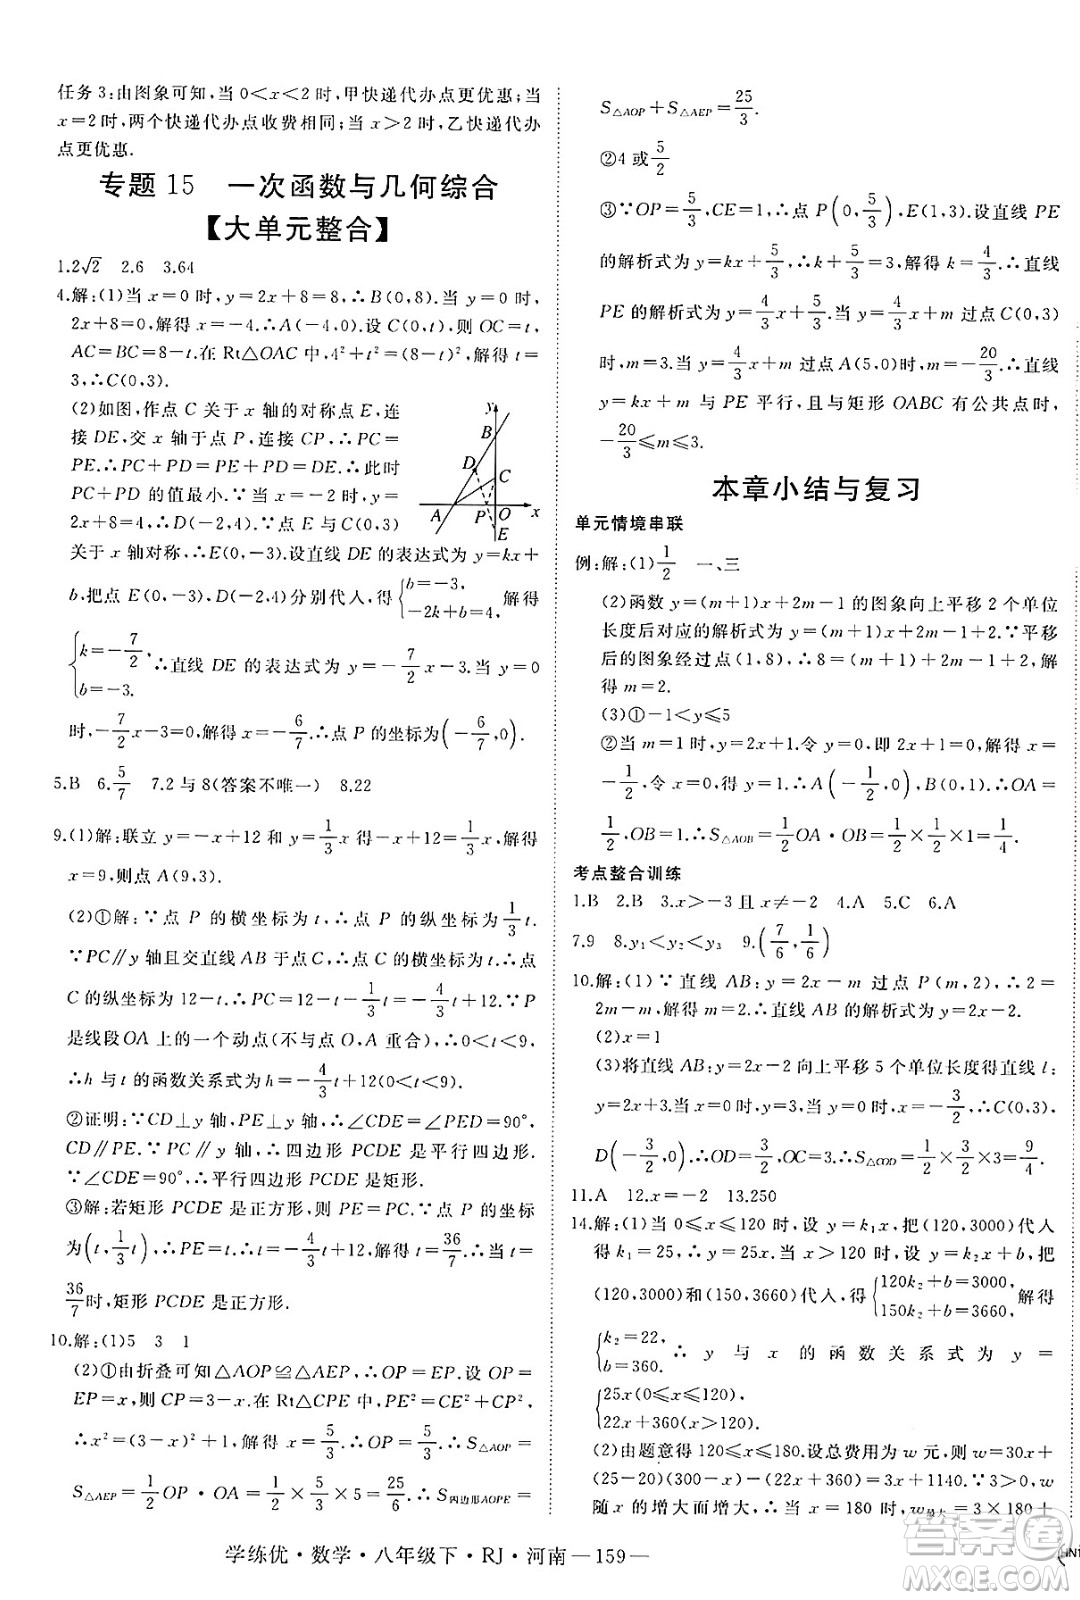 任务 3:由图象可知,当 0＜x＜2 时,甲快递代办点更优惠;当
x=2时,两个快递代办点收费相同;当 x＞2 时,乙快递代办
点更优惠.
专题 15 一次函数与几何综合
【大单元整合】
1.2√2 2.6 3.64
4.解:(1)当 x=0 时,y=2x+8=8,∴B(0,8).当 y=0 时,
2x+8=0,解得 x=-4.∴A(-4,0).设 C(0,t),则 OC=t,
AC=BC=8-t.在 Rt△OAC 中,4²+t²=(8-t)²,解得 t=
3,∴C(0,3).
(2)如图,作点 C 关于 x 轴的对称点 E,连
接 DE,交 x 轴于点 P,连接 CP,∴CP=
PE.∴PC+PD=PE+PD=DE.∴此时
PC+PD 的值最小.∵D(-2,a)在直线 y=
2x+8=4,∴D(-2,4).∵点 C(0,3)与点 E
关于 x 轴对称,∴E(0,-3).设直线 DE 的表达式为 y=kx+
b,把点 E(0,-3),D(-2,4)分别代人,得{b=-3, -2k+b=4, 解得
{k=-7/2, b=-3. ∴直线 DE 的表达式为 y=-7/2x-3.当 y=0
时,-7/2x-3=0,解得 x=-6/7.∴点 P 的坐标为(-6/7,0).
5.B 6.5/7 7.2 与 8(答案不唯一) 8.22
9.(1)解:联立 y=-x+12 和 y=1/3x 得-x+12=1/3x,解得
x=9,则点 A(9,3).
(2)①解:∵点 P 的横坐标为 t,∴点 P 的纵坐标为1/3t.
∵PC∥y 轴且交直线 AB 于点 C,∴点 C 的横坐标为 t,∴点
C 的纵坐标为 12-t,∴h=12-t-1/3t=-4/3t+12.∵P
是线段OA 上的一个动点(不与点 O,A 重合),∴0＜t＜9,
∴h 与 t 的函数关系式为 h=-4/3t+12(0＜t＜9).
②证明:∵CD⊥y 轴,PE⊥y 轴,∴∠CDE=∠PED=90°,
CD∥PE.∵PC∥y 轴,∴四边形 PCDE 是平行四边形.
∵∠CDE=90°,∴平行四边形 PCDE 是矩形.
③解:若矩形 PCDE 是正方形,则 PC=PE.∵点 P 的坐标
为(t,1/3t),∴PE=t,∴-4/3t+12=t,解得 t=36/7,∴当 t=
36/7时,矩形 PCDE 是正方形.
10.解:(1)5 3 1
(2)①由折叠可知△AOP≌△AEP,∴OP=EP.设 OP=
EP=x,则 CP=3-x,在 Rt△PCE 中,∵EP²=CE²+CP²,
∴x²=(3-x)²+1,解得 x=5/3,∴OP=5/3,∴S△AOP=
S△AEP=1/2OP·OA=1/2×5/3×5=25/6,∴S四边形AOPE=
S△AOP+S△AEP=25/3.
②4或5/2
③∵OP=5/3,CE=1,∴点 P(0,5/3),E(1,3).设直线 PE
的解析式为 y=kx+5/3,∴3=k+5/3,解得 k=4/3.∴直线
PE 的解析式为 y=4/3x+5/3.当 y=4/3x+m 过点 C(0,3)
时,m=3.当 y=4/3x+m 过点 A(5,0)时,m=-20/3.∵y=
kx+m 与 PE 平行,且与矩形 OABC 有公共点时,
-20/3≤m≤3.
本章小结与复习
单元情境串联
例:解:(1)1/2 一、三
(2)函数 y=(m+1)x+2m-1 的图象向上平移 2 个单位
长度后对应的解析式为 y=(m+1)x+2m+1.∵平移
后的图象经过点(1,8),∴8=(m+1)+2m+1,解
得 m=2.
(3)①-1＜y≤5
②当 m=1 时,y=2x+1.令 y=0,即 2x+1=0,解得 x=
-1/2,令 x=0,得 y=1.∴A(-1/2,0),B(0,1).∴OA=
1/2,OB=1.∴S△AOB=1/2OA·OB=1/2×1/2×1=1/4.
考点整合训练
1.B 2.B 3.x＞-3 且 x≠-2 4.A 5.C 6.A
7.9 8.y₁＜y₂＜y₃ 9.(7/6,1/6)
10.解:(1)∵直线 AB:y=2x-m 过点 P(m,2),∴2=
2m-m,解得 m=2.∴直线 AB 的解析式为 y=2x-2.
(2)x=1
(3)将直线 AB:y=2x-2 向上平移 5 个单位长度得直线 l:
y=2x+3,当 x=0 时,y=3;当 y=0 时,x=-3/2,∴C(0,3),
D(-3/2,0).∴OD=3/2,OC=3,∴S△COD=1/2×3/2×3=9/4.
11.A 12.x=-2 13.250
14.解:(1)当 0≤x≤120 时,设 y=k₁x,把(120,3000)代人
得 k₁=25,∴y=25x.当 x＞120 时,设 y=k₂x+b,把
(120,3000)和(150,3660)代人,得{120k₂+b=3000, 150k₂+b=3660, 解得
{k₂=22, b=360. ∴ y 与 x 的函数关系式为 y=
{25x(0≤x≤120), 22x+360(x＞120).
(2)由题意得 120≤x≤180.设总费用为 w 元,则 w=30x+
(25-20)(300-x)-22x+360=3x+1140.∵3＞0,w
随 x 的增大而增大,∴当 x=180 时,w最大=3×180+
学练优·数学·八年级下·RJ·河南—159—
答案圈
MXQE.COM